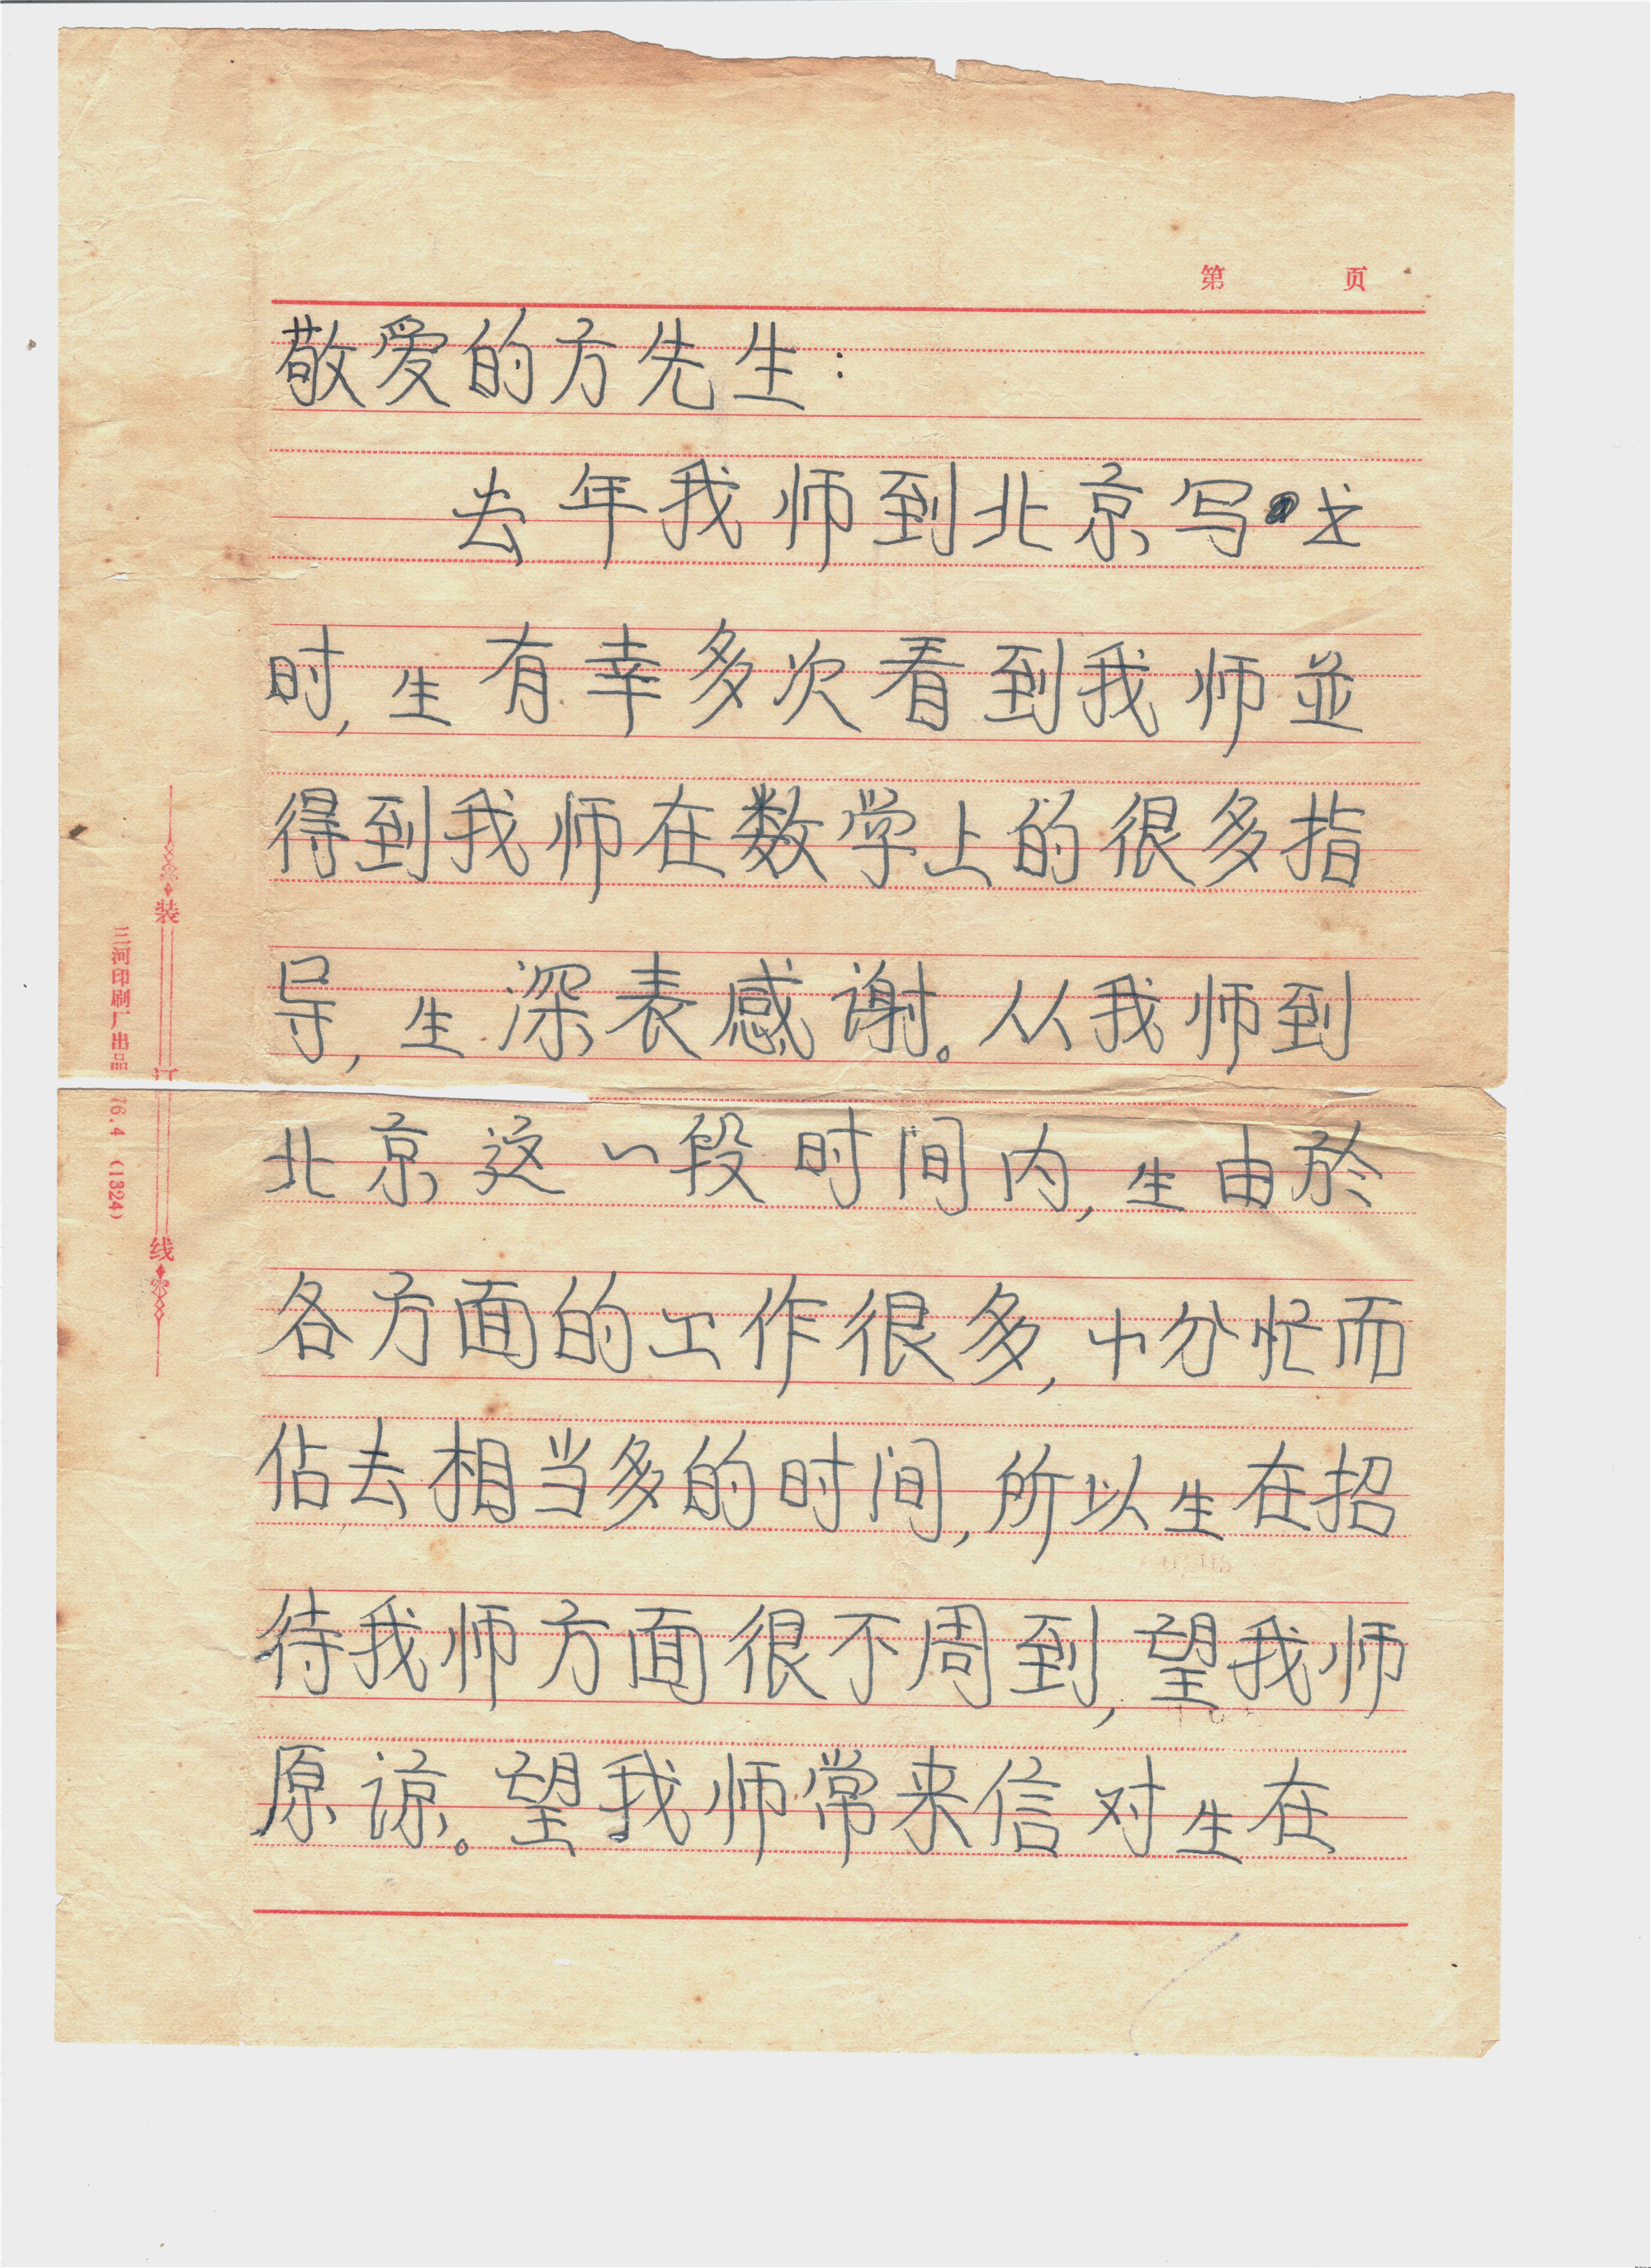 第 页
敬爱的方先生:
去年我师到北京写
时,生有幸多次看到我师並
得到我师在数学上的很多指
导,生深表感谢。从我师到
北京这一段时间内,生由於
各方面的工作很多,十分忙而
佔去相当多的时间,所以生在招
待我师方面很不周到,望我师
原谅。望我师常来信对生在
装订线
三河印刷厂出品 76.4 (1324)